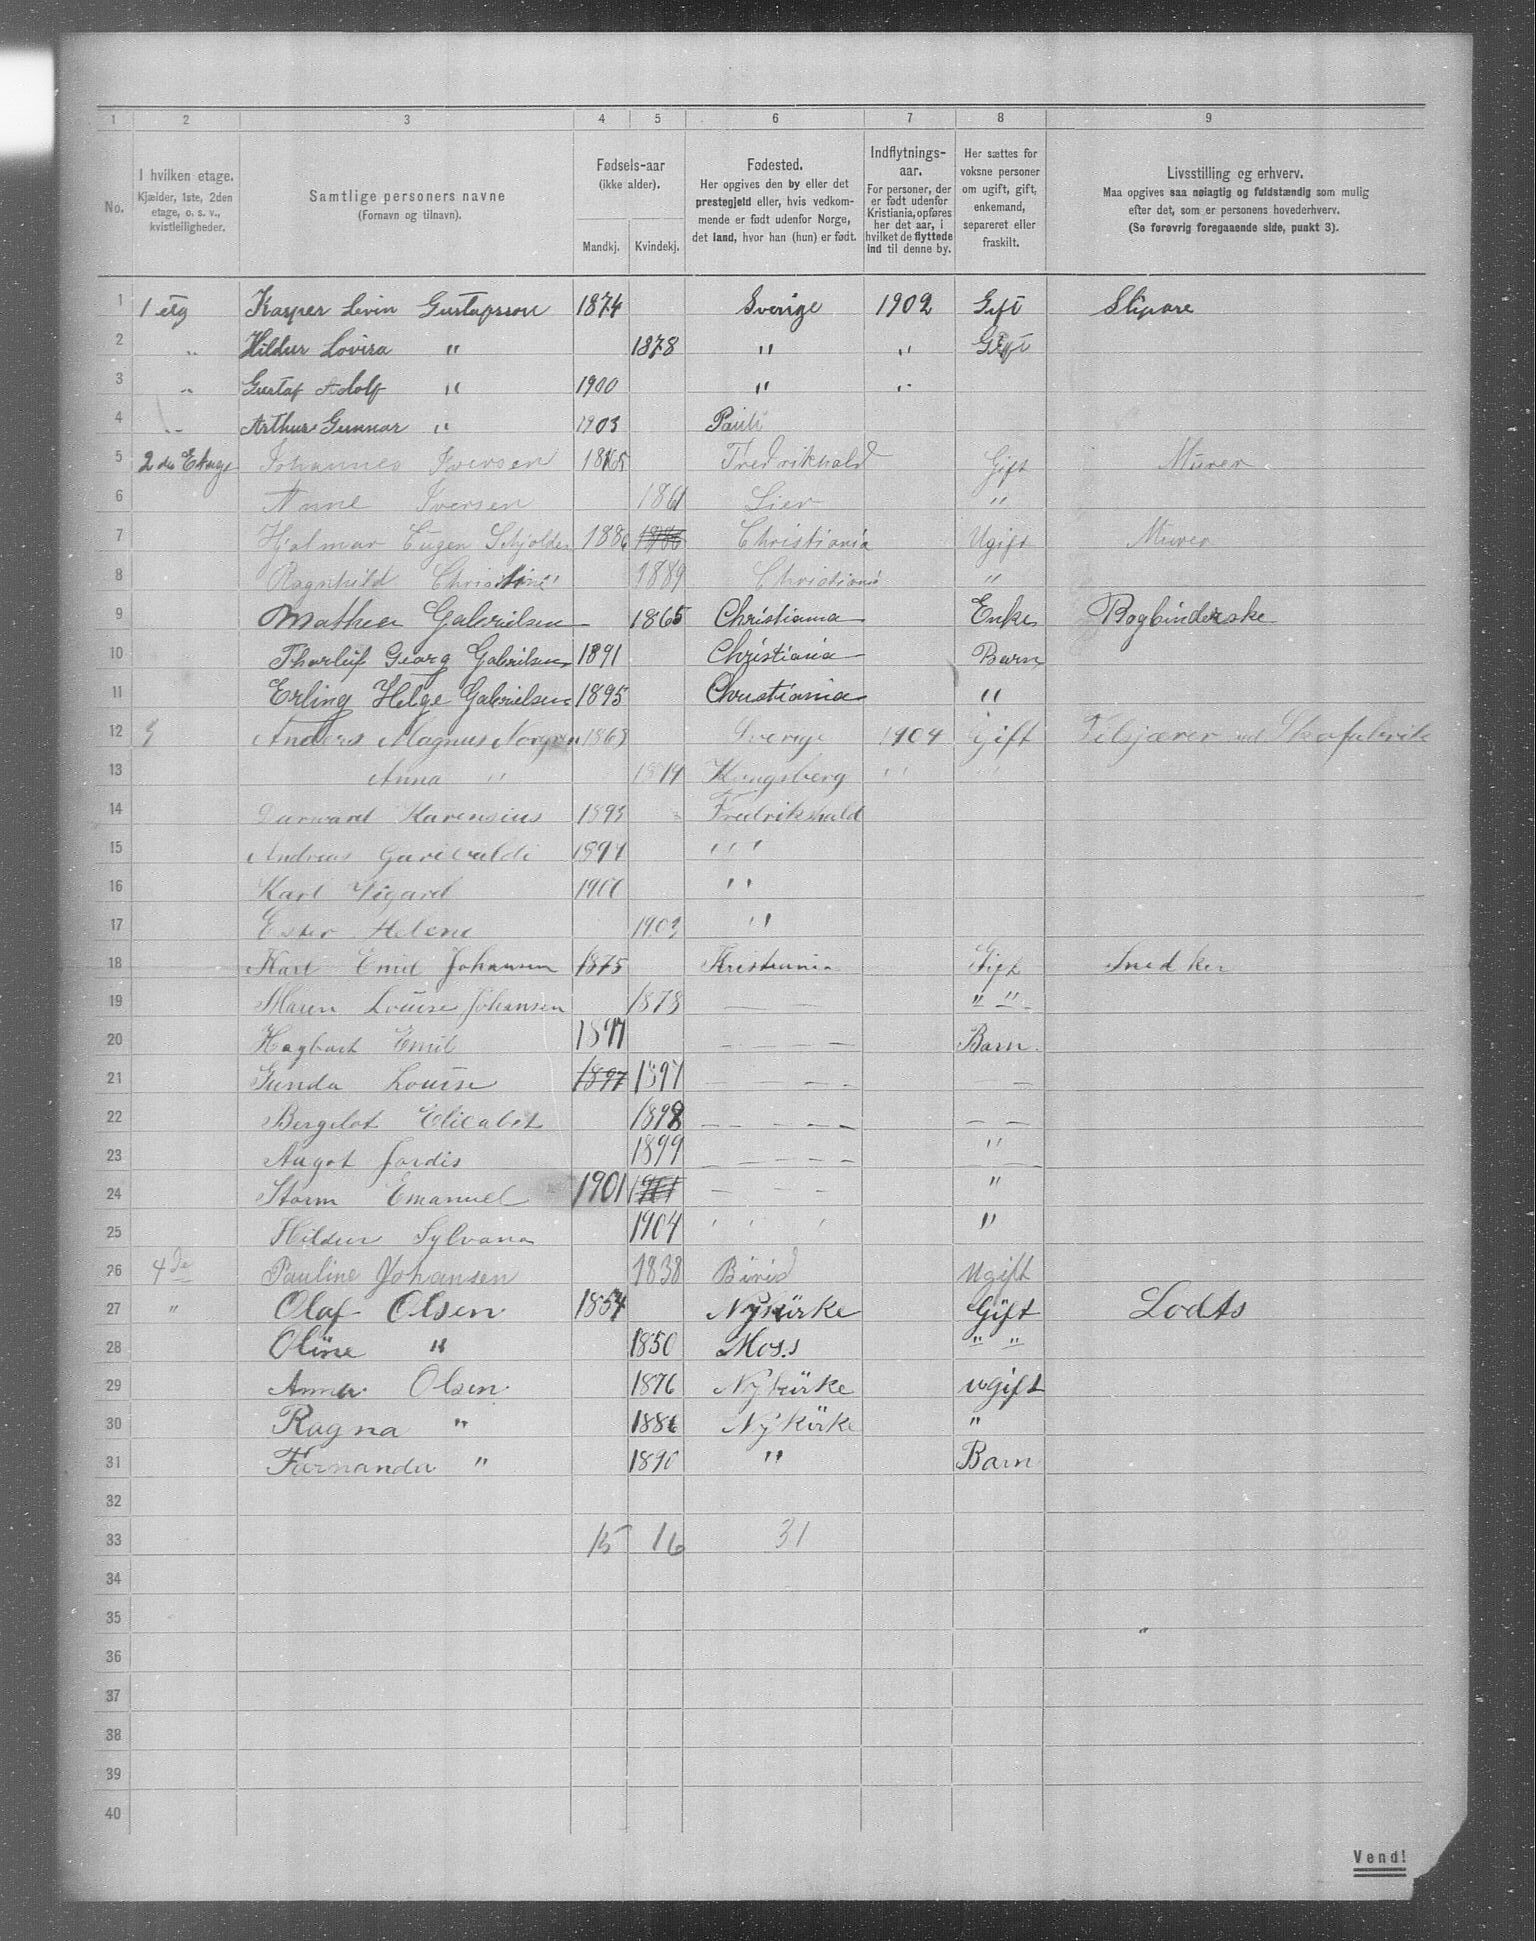 1 2 3 4 5 6 7 8 9
No.
I hvilken etage.
Kjælder, 1ste, 2den
etage, o. s. v.,
kvistleiligheder.
Samtlige personers navne
(Fornavn og tilnavn).
Fødsels-aar
(ikke alder).
Mandkj. Kvindekj.
Fødested.
Her opgives den by eller det
prestegjeld eller, hvis vedkom-
mende er født udenfor Norge,
det land, hvor han (hun) er født.
Indflytnings-
aar.
For personer, der
er født udenfor
Kristiania, opføres
her det aar, i
hvilket de flyttede
ind til denne by.
Her sættes for
voksne personer
om ugift, gift,
enkemand,
separeret eller
fraskilt.
Livsstilling og erhverv.
Maa opgives saa nøiagtig og fuldstændig som mulig
efter det, som er personens hovederhverv.
(Se forøvrig foregaaende side, punkt 3).
1 1 etg Kasper Levin Gustafsson 1874 Sverige 1902 Gift Slipare
2 " Hildur Lovisa " 1878 " " Gift
3 " Gustaf Adolf " 1900 " "
4 " Arthur Gunnar " 1903
5 2 de Etage Johannes Iversen 1865 Fredrikhald Gift Murer
6 Anne Iversen 1861 Lier "
7 Hjalmar Eugen 1886 1886 Christiania Ugift Murer
8 Ragnhild Christine 1889 Christiania "
9 Mathea Gabrielsen 1865 Christiania Enke Bogbinderske
10 Thorleif Georg Gabrielsen 1891 Christiania Barn
11 Erling Helge Gabrielsen 1895 Christiania "
12 Anders Magnus Norgren Sverige 1904 Gift Tilsjærer ved Skofabrik
13 Anna " Kongsberg " "
14 Karensius 1893 Fredrikshald
15 Andreas Garibaldi 1897 " "
16 Karl Vigard 1900 "
17 Ester Helene 1903 "
18 Karl Emil Johansen 1875 Kristiania Gift Snedker
19 Maren Louise Johansen 1878 — — " "
20 Hagbart Emil 1897 — — — — Barn
21 Gunda Louise 1897 1897 — — — — —
22 Bergelot Elicabet 1898 — — — — — —
23 Augot Jordis 1899 — — — — "
24 Storm Emanuel 1901 1901 — — — "
25 Hildur Sylvana 1904 " " " "
26 4de Pauline Johansen 1838 Birid Ugift
27 " Olaf Olsen 1854 Nykirke Gift Lodts
28 Oline " 1850 Moss " "
29 Anna Olsen 1876 Nykirke ugift
30 Ragna " 1886 Nykirke "
31 Fernanda " 1890 " Barn
32
33 15 16 31
34
35
36
37
38
39
40
Vend!